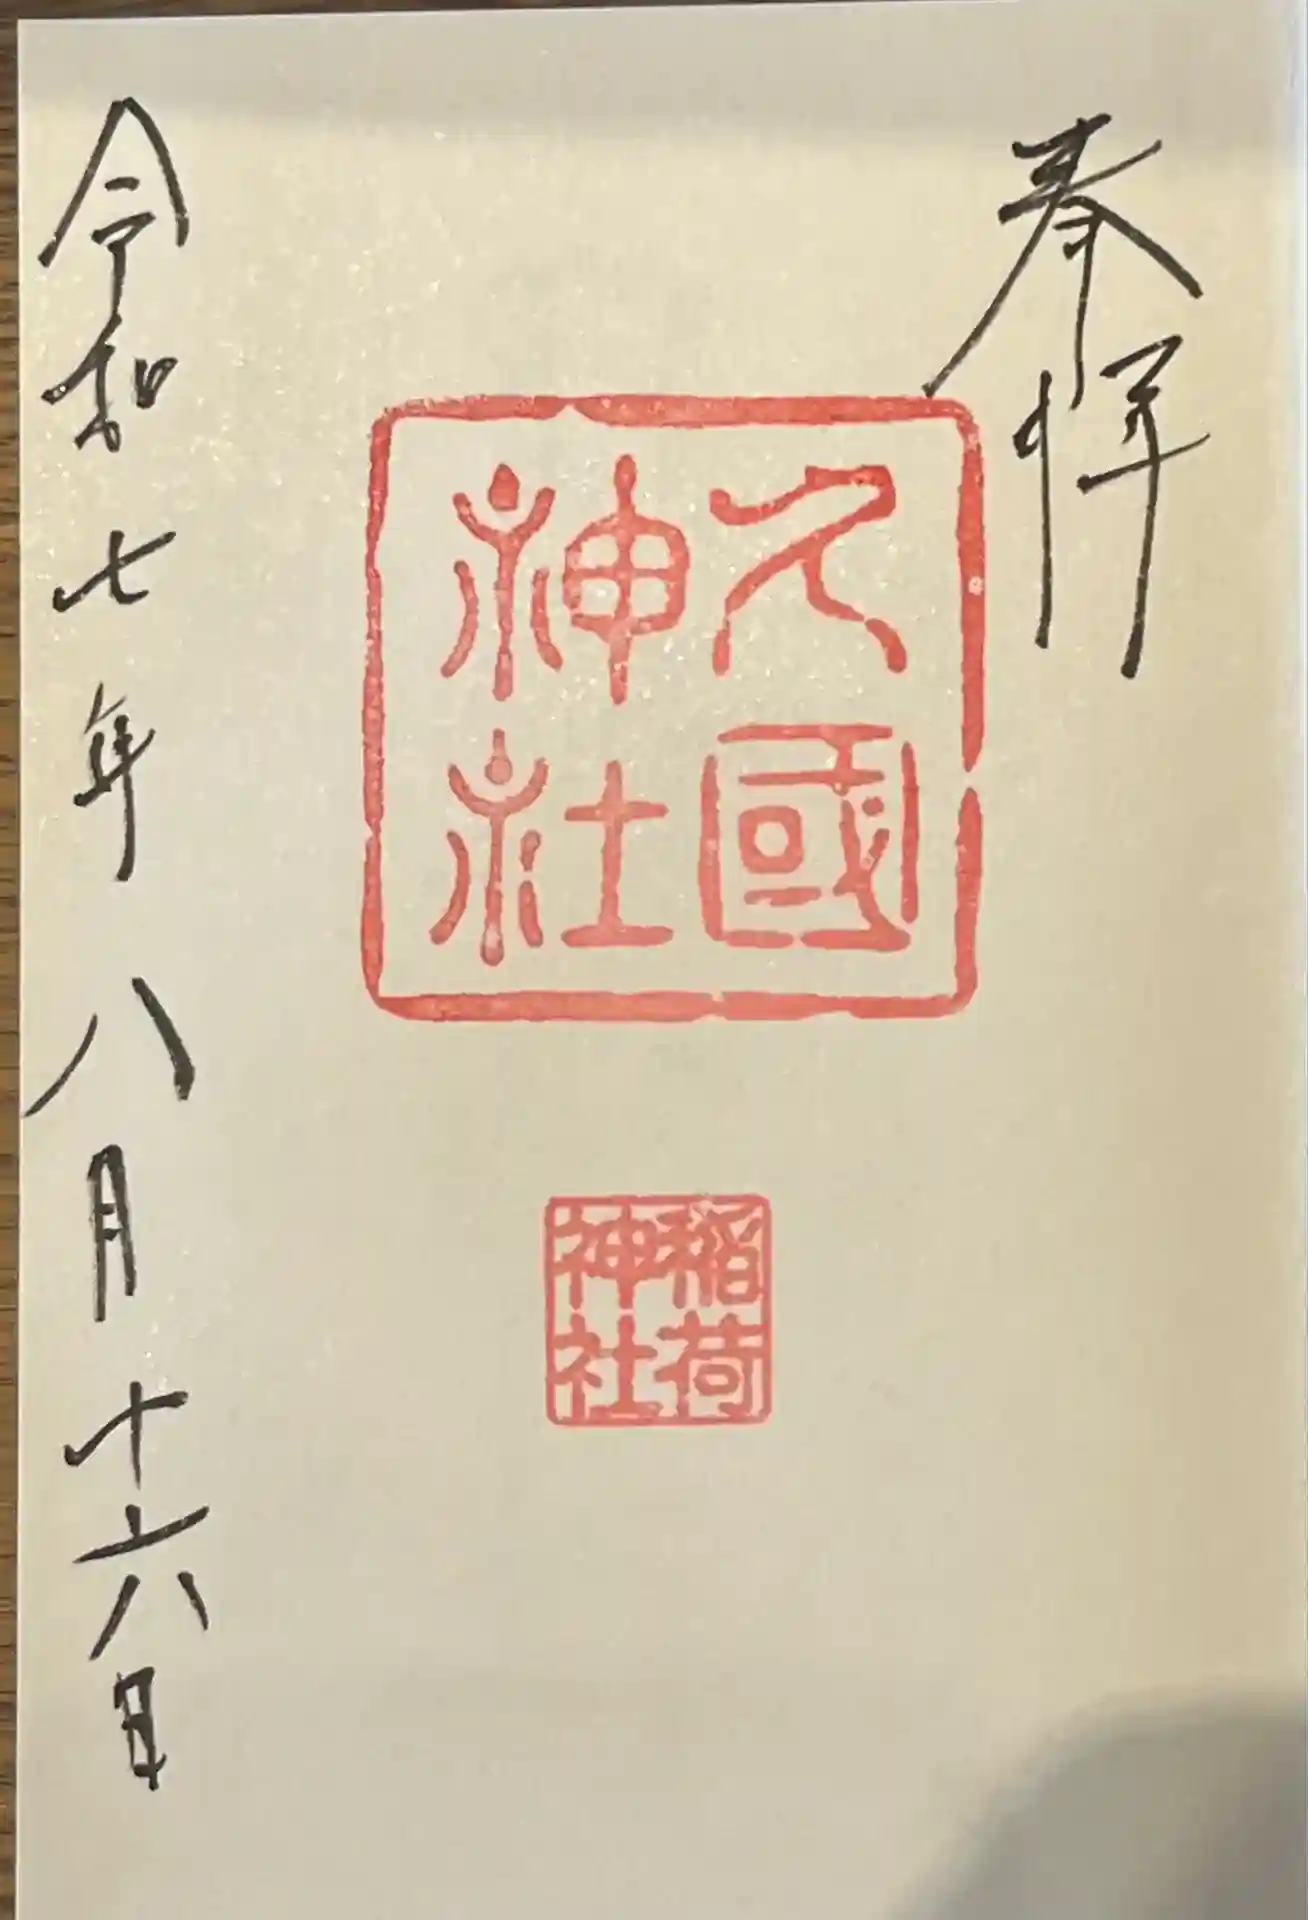 奉拝
久國神社
稲荷神社
令和七年八月十六日